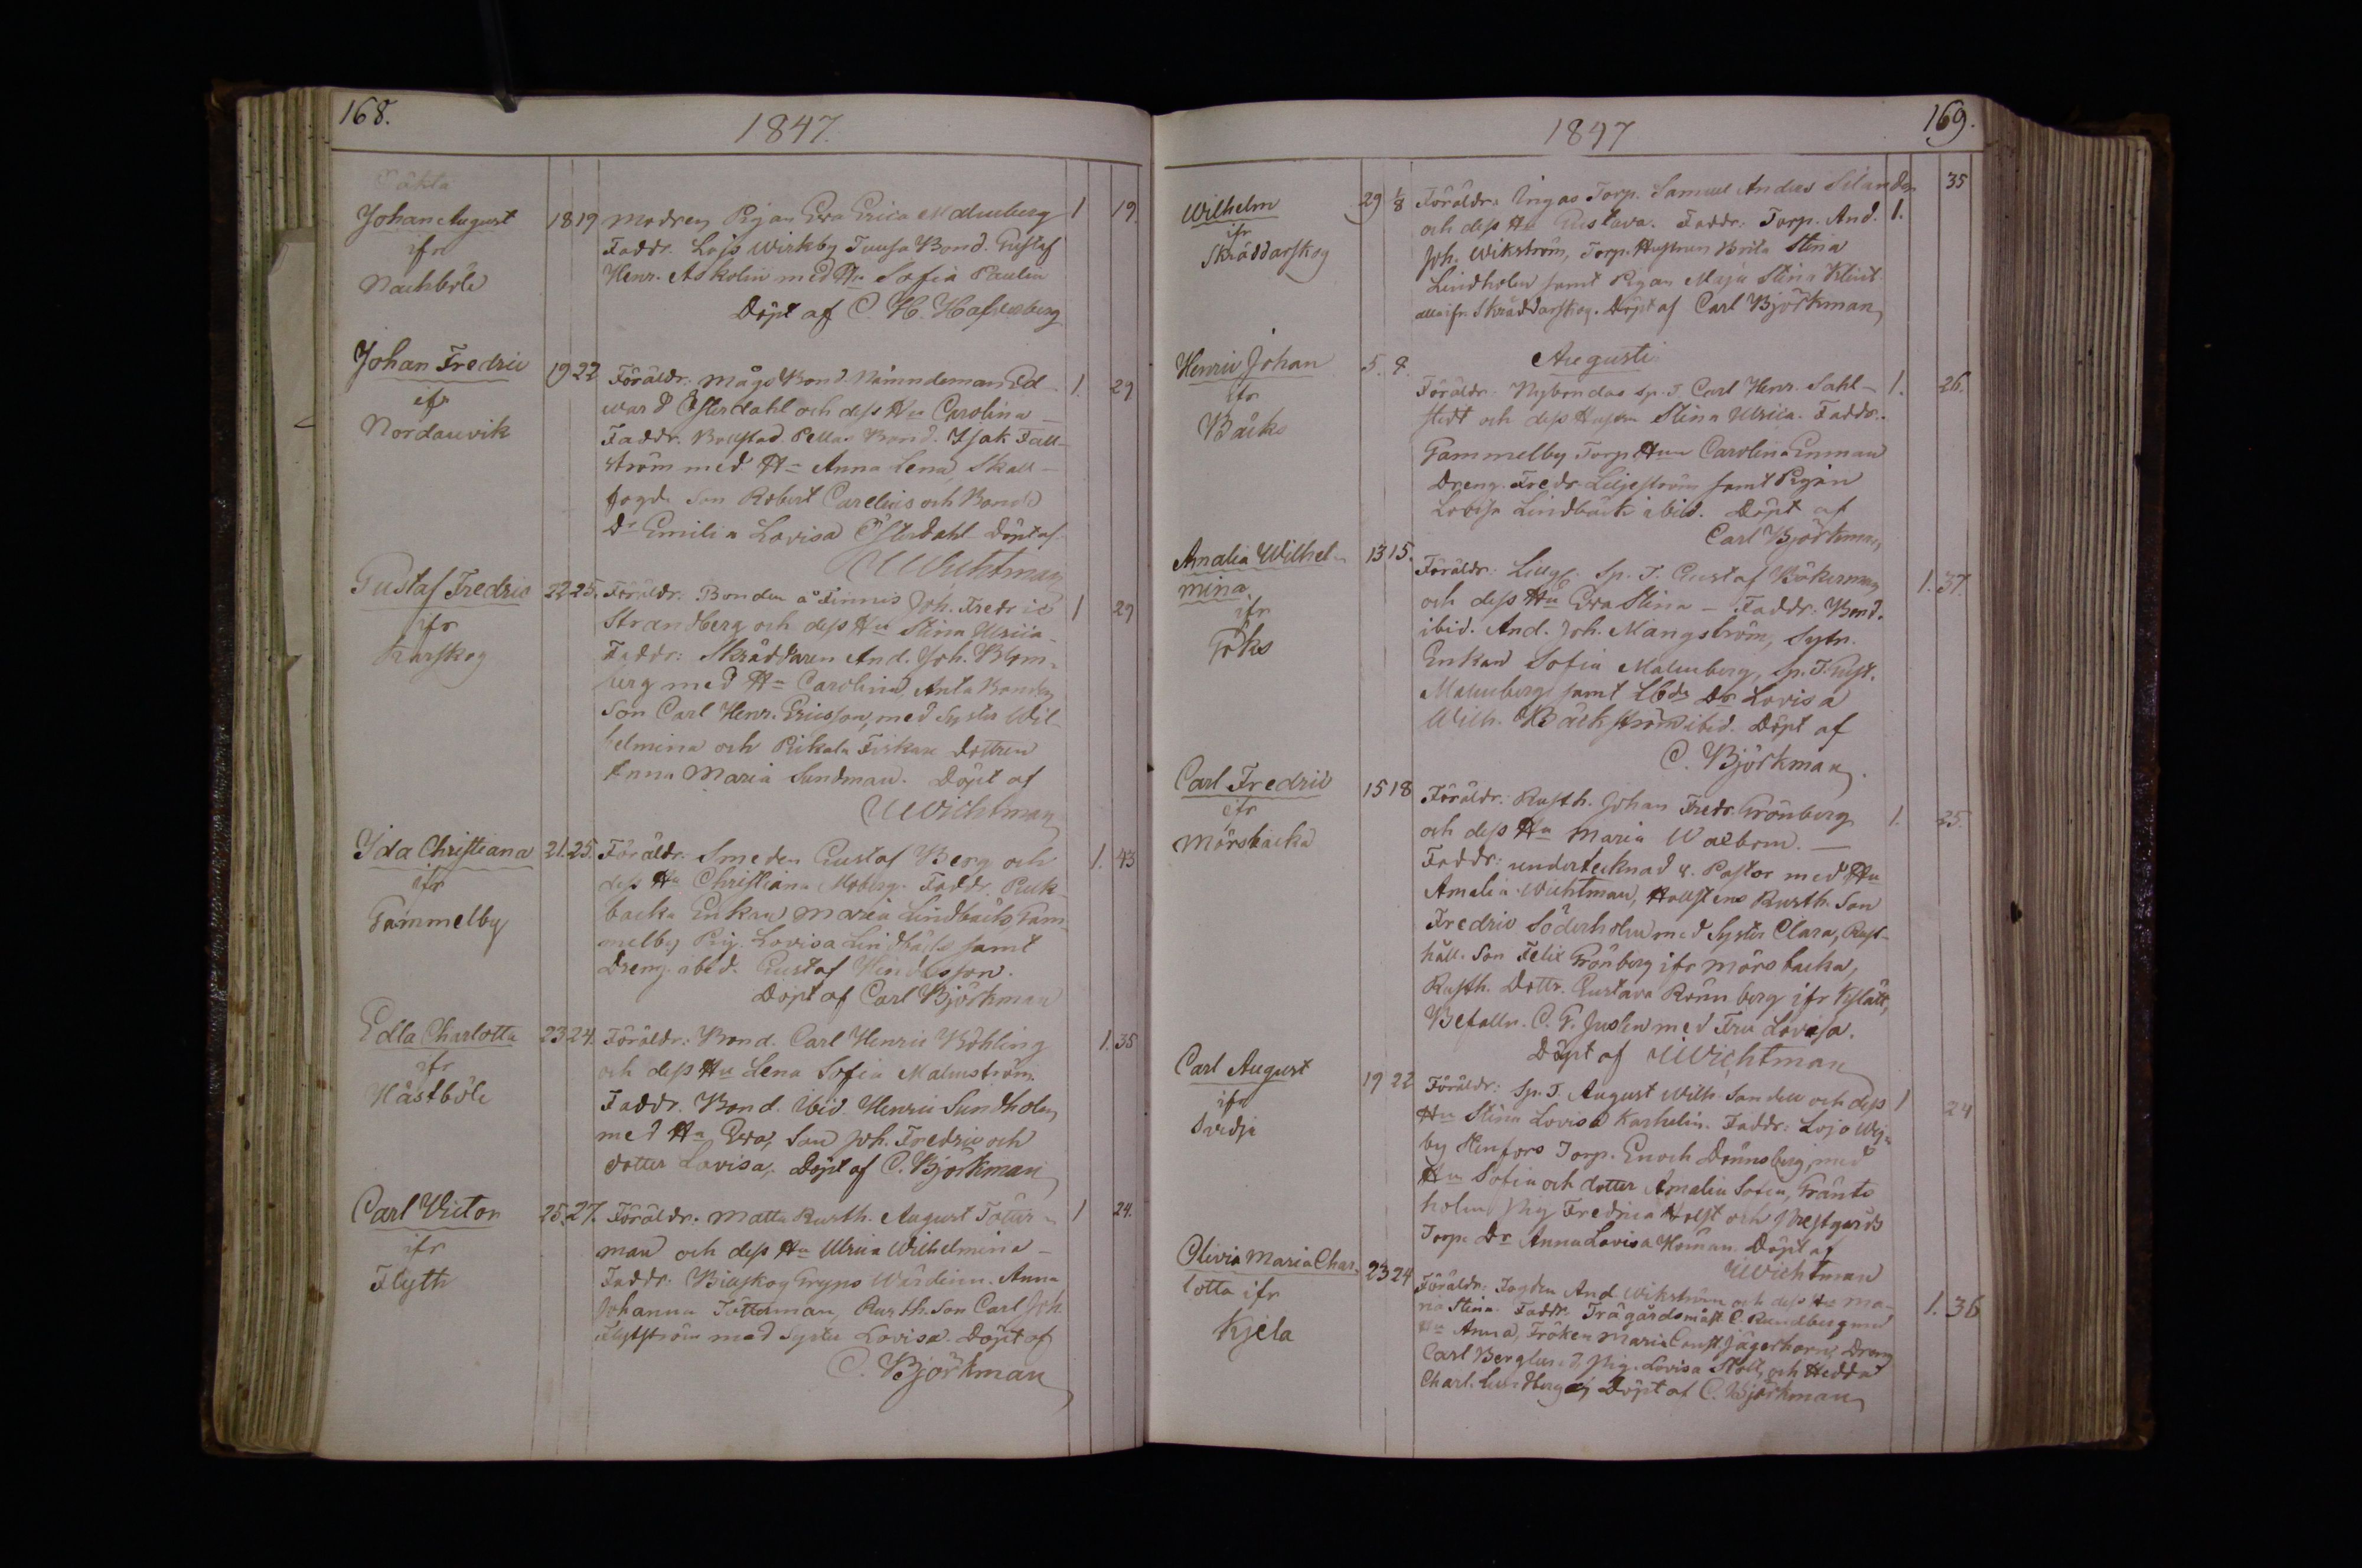 168.
1847.
Oäkta
Johan August
ifr
Nackböle
18 19 Modren Pigan Eva Erica Malmberg 1 19.
Faddr. Lojo Wirkby Tuusa Bond. Gustaf
Henr. Askolin med Hu Sofia Paulin
Döpt af C. H.
Johan Fredric
ifr
Nordanvik
19 22 Föräldr: Mågs Bond. Nämndeman Ed- 1. 29
ward Österdahl och dess Hu Carolina
Faddr. Bollstad Pellas Bond. Isak Fall-
ström med Hu Anna Lena, Skall-
fogd. Son Robert Carelius och Bond.
Dr Emilia Lovisa Österdahl Döpt af
Wichtman
Gustaf Fredric
ifr
Karskog
22 25. Föräldr: Bonden å Finnis Joh. Fredric 1 29
Strandberg och dess Hu Stina Ulrica
Faddr: Skräddaren And. Joh. Blom-
berg med Hu Carolina, Anta Bonden
Son Carl Henr. Ericsson, med Syster Wil-
helmina och Rikala Fiskare dottren
Anna Maria Sundman. Döpt af
Wichtman
Ida Christiana
ifr
Gammelby
21. 25. Föräldr: Smeden Gustaf Berg och 1. 43
dess Hu Christiana Moberg. Faddr.
backa Enkan Maria Lindbäck, Gam-
melby Pig. Lovisa Lindbäck samt
Dreng ibid. Gustaf
Döpt af Carl Björkman
Edla Charlotta
ifr
Hästböle
23 24. Föräldr: Bond. Carl Henric Böhling 1. 35
och dess Hu Lena Sofia Malmström
Faddr. Bond. Ibid. Henric Sundholm
med Hu Eva, Son Joh. Fredric och
dotter Lovisa. Döpt af C. Björkman
Carl Victor
ifr
Flyth
25. 27. Föräldr. Matta Rusth. August Tötter- 1 24.
man och dess Hu Ulrica Wilhelmina
Faddr: Billskog Gryps Wärdinn. Anna
Johanna Tötterman, Rusth. Son Carl Joh.
Flytström med Syster Lovisa. Döpt af
C. Björkman
169.
1847
Wilhelm
ifr
Skräddarskog
29 1/8 Föräldr: Ingas Torp. Samuel Anders Silander 35
och dess Hu Gustava. Faddr: Torp. And. 1.
Joh. Wikström, Torp. Hustrun Brita Stina
Lindholm samt Pigan Maja Stina Klint
alla ifr Skräddarskog. Döpt af Carl Björkman
Augusti
Henric Johan
ifr
Bäcks
5. 8. Föräldr: Nybondas Sp. T. Carl Henr. Sahl- 1. 26.
stedt och dess Hustru Stina Ulrica. Faddr.
Gammelby Torp. Hun Carolina Enman
Dreng. Fredr. Liljeström samt Pigan
Lovisa Lindbäck ibid. Döpt af
Carl Björkman
Amalia Wilhel-
mina
ifr
Joks
13 15. Föräldr: Sp. T. Gustaf Bökerman 1. 37.
och dess Hu Eva Stina – Faddr: Bond.
ibid. And. Joh. Mangström, Sytn.
Enkan Sofia Malmberg, Sp. T. Gust.
Malmberg samt Lbds Dr Lovisa
Wilh. Bäckström ibid. Döpt af
C. Björkman.
Carl Fredric
ifr
Mörsbacka
15 18 Föräldr: Rusth. Johan Fredr. Grönberg 1. 25.
och dess Hu Maria Walbom. –
Faddr: undertecknad v. Pastor med Hu
Amalia Wichtman, Hallstens Rusth. Son
Fredric Söderholm med Syster Clara, Rust-
håll. Son Felix Grönberg ifr Mörsbacka,
Rusth. Dottr. Gustava Rönnberg ifr Kyslätt,
Befalln. C. G. Juslin med Fru Lovisa.
Döpt af Wichtman
Carl August
ifr
Svidja
19 22 Föräldr: Sp. T. August Wilh. Sandell och dess 1 24
Hu Stina Lovisa Karhelin. Faddr: Lojo
by Torp. Enoch Drönsberg, med
Hu Sofia och dotter Amalia Sofia, Gränts
holm Pig Fredrica Holst och Prestgårds
Torp. Dr Anna Lovisa Homan. Döpt af
Wichtman
Olivia Maria Char-
lotta ifr
Kjela
23 24 Föräldr: Fogden And. Wikström och dess Hu Ma- 1. 36
ria Stina. Faddr. Trägårdsmäst. C. Rundberg med
Hu Anna, Fröken Maria Const. Jägerhorn, Dreng
Carl Berglund, Pig. Lovisa Stolt, och Hedda
Charl. Lundberg Döpt af C. Björkman